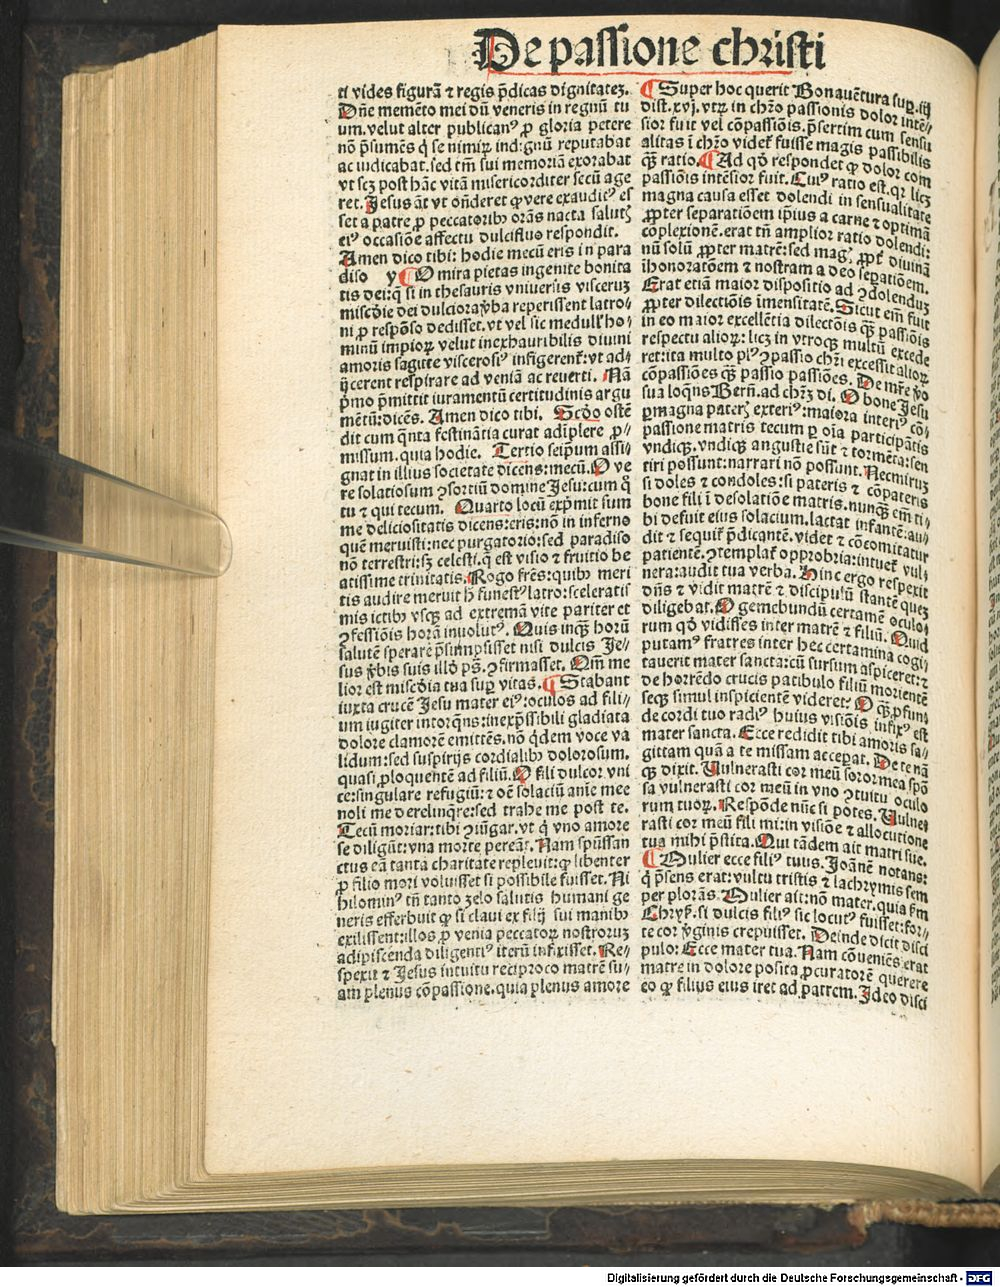 De passione christi
ti vides figurā ⁊ regis p̄dicas dignitatez.
Dn̄e memēto mei dū veneris in regnū tu
um. velut alter publicanꝰ ꝓ gloria petere
nō p̄sumēs q̇ se nimiꝝ indignū reputabat
ac iudicabat. sed tm̄ sui memoriā exorabat
vt scꝫ post hāc vitā misericorditer secū age
ret. Jesus āt vt on̄deret ꝙ vere exauditꝰ es
set a patre ꝓ peccatoribꝰ orās nacta salutꝭ
eiꝰ occasiōe affectu dulcifluo respondit.
Amen dico tibi: hodie mecū eris in para
diso y ¶ O mira pietas ingenite bonita
tis dei: q̇ si in thesauris vniuersis visceruꝫ
misc̄die dei dulciora v̄ba reperissent latro-
ni ꝓ respōso dedisset. vt vel sic medull' ho-
minū impioꝝ velut inexhauribilis diuini
amoris sagitte viscerosiꝰ infigerent': vt ad-
ijcerent respirare ad veniā ac reuerti. Nā
p̄mo p̄mittit iuramentū certitudinis argu
mētū: dicēs. Amen dico tibi. Scd̄o ostē
dit cum q̄nta festinātia curat adīplere ꝓ-
missum. quia hodie. Tertio seipm̄ assi-
gnat in illius societate dicens: mecū. O ve
re solatiosum ꝯsortiū domine Jesu: cum q̇
tu ⁊ qui tecum. Quarto locū exp̄mit sum
me deliciositatis dicens: eris: nō in inferno
quē meruisti: nec purgatorio: sed paradiso
nō terrestri: sꝫ celesti. q̇ est visio ⁊ fruitio be
atissime trinitatis. Rogo fr̄es: quibꝰ meri
tis audire meruit h̄ funestꝰ latro: sceleratis
mis ictibꝰ vsqꝫ ad extremā vite pariter et
ꝯfessiōis horā inuolutꝰ. Quis inqꝫ horū
salutē sperare p̄sumpsisset nisi dulcis Je-
sus v̄bis suis illd̄ ps̄. ꝯfirmasset. Qm̄ me
lior est misc̄dia tua suꝑ vitas. ¶ Stabant
iuxta crucē Jesu mater eiꝰ: oculos ad fili-
um iugiter intorq̄ns: inexp̄ssibili gladiata
dolore clamorē emittēs. nō q̇dem voce va
lidum: sed suspirijs cordialibꝰ dolorosum.
quasi ꝓloquentē ad filiū. O fili dulcor vni
ce: singulare refugiū: ⁊ oē solaciū anie mee
noli me derelinq̄re: sed trahe me post te.
Tecū moriar: tibi ꝯiūgar. vt q̇ vno amore
se diligūt: vna morte pereāt. Nam spūssan
ctus eā tanta charitate repleuit: ꝙ libenter
ꝓ filio mori voluisset si possibile fuisset. Ni
hilominꝰ tn̄ tanto zelo salutis humani ge
neris efferbuit ꝙ si claui ex filij sui manibꝰ
exilissent: illos ꝓ venia peccatoꝝ nostroruꝫ
adipiscenda diligentiꝰ iterū infixisset. Re-
spexit ⁊ Jesus intuitu reciproco matrē su-
am plenus cōpassione. quia plenus amore
¶ Super hoc querit Bonauētura suꝑ .iij
dist. xvj. vtꝝ in chr̄o passionis dolor intē-
sior fuit vel cōpassiōis. p̄sertim cum sensu
alitas ī chr̄o videt' fuisse magis passibilis
qꝫ̄ ratio. ¶ Ad qd̄ respondet ꝙ dolor com
passiōis intēsior fuit. Cuiꝰ ratio est. qꝛ licꝫ
magna causa esset dolendi in sensualitate
ꝓpter separatiōem ip̄ius a carne ⁊ optimā
cōplexionē. erat tn̄ amplior ratio dolendi:
nū solū ꝓpter matrē: sed magꝭ ꝓpt' diuinā
īhonoratōem ⁊ nostram a deo seꝑatiōem.
Erat etiā maior dispositio ad ꝯdolenduꝫ
ꝓpter dilectiōis īmensitatē. Sicut em̄ fuit
in eo maior excellētia dilectōis qꝫ̄ passiōis
respectu alioꝝ: licꝫ in vtroqꝫ multū excede
ret: ita multo plꝰ ꝯpassio chr̄i excessit alioꝝ
cōpassiōes qꝫ̄ passio passiōes. De mr̄e v̄o
sua loq̄ns Bern̄. ad chr̄ꝫ di. O bone Jesu
ꝑmagna pateris exteriꝰ: maiora interiꝰ cō-
passione matris tecum ꝑ oīa participātis
vndiqꝫ. vndiqꝫ angustie sūt ⁊ tormēta: sen
tiri possunt: narrari nō possunt. Nec miruꝫ
si doles ⁊ condoles: si pateris ⁊ cōpateris
bone fili ī desolatiōe matris. nunqꝫ̄ em̄ ti-
bi defuit eius solacium. lactat infantē: au-
dit ⁊ sequit' p̄dicantē. videt ⁊ cōcomitatur
patientē. ꝯtemplat' opprobria: intuet' vul-
nera: audit tua verba. Hinc ergo respexit
dn̄s ⁊ vidit matrē ⁊ discipulū stantē queꝫ
diligebat. O gemebundū certamē oculo-
rum qd̄ vidisses inter matrē ⁊ filiū. Quid
putamꝰ fratres inter hec certamina cogi-
tauerit mater sancta: cū sursum aspiceret: ⁊
de horrēdo crucis patibulo filiū morientē
seqꝫ simul inspicientē videret? O qꝫ̄ ꝓfun-
de cordi tuo radiꝰ huius visiōis infixꝰ est
mater sancta. Ecce redidit tibi amoris sa-
gittam quā a te missam acceꝑat. De te nā
qꝫ dixit. Vulnerasti cor meū soror mea spō
sa vulnerasti cor meū in vno ꝯtuitu oculo
rum tuoꝝ. Respōde nūc si potes. Vulne-
rasti cor meū fili mi: in visiōe ⁊ allocutione
tua mihi p̄stita. Qui tādem ait matri sue.
¶ Mulier ecce filiꝰ tuus. Joānē notans:
q̇ p̄sens erat: vultu tristis ⁊ lachrymis sem
per plorās. Mulier ait: nō mater. quia s̄m
Chrys̄. si dulcis filiꝰ sic locutꝰ fuisset: for-
te cor v̄ginis crepuisset. Deinde dicit disci
pulo. Ecce mater tua. Nam cōueniēs erat
matre in dolore posita ꝓcuratorē querere
eo ꝙ filius eius iret ad patrem. Ideo disci
Digitalisierung gefördert durch die Deutsche Forschungsgemeinschaft - DFG